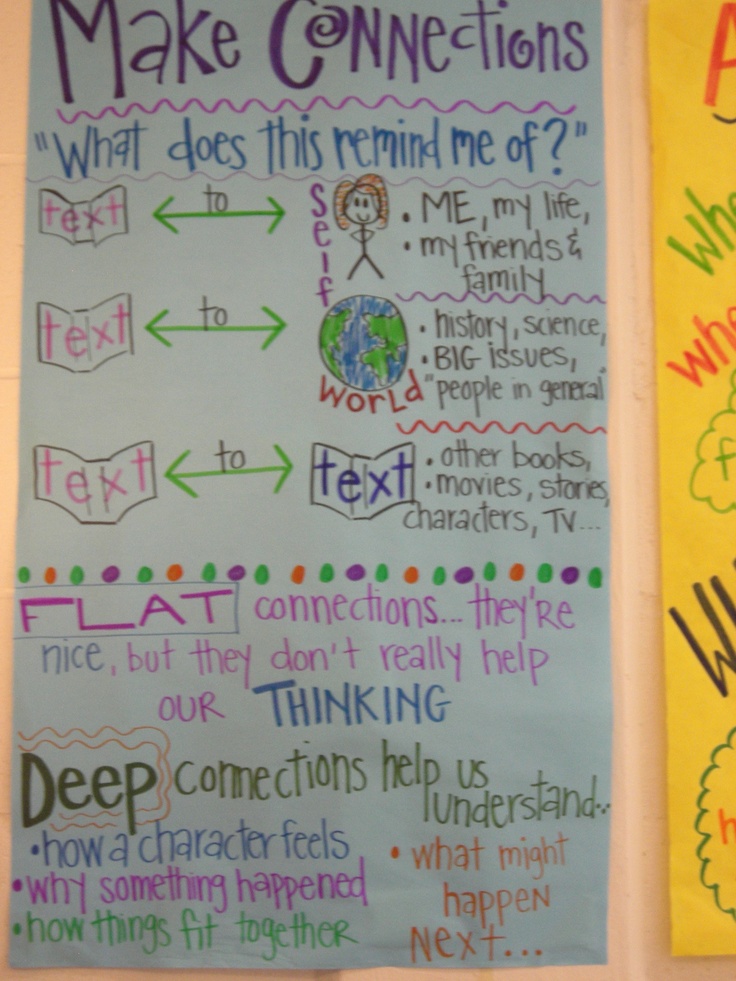 Make Connections
"What does this remind me of?"
text to Self • ME, my life,
• my friends &
family
text to World • history, science,
• BIG issues,
"people in general
text to text • other books,
• movies, stories,
characters, TV...
FLAT connections... they're
nice, but they don't really help
our THINKING
Deep connections help us
understand...
• how a character feels
• why something happened
• how things fit together
• what might
happen
Next...